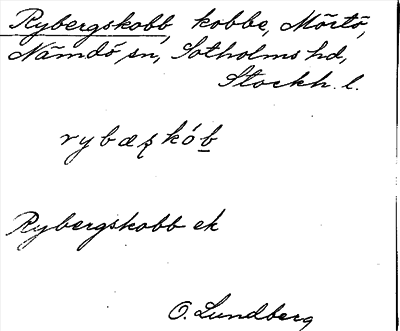 Rybergskobb, kobbe, Mörtö,
Nämdö sn, Sotholms hd,
Stockh. l.
rybæʂkób
Rybergskobb ek
O. Lundberg